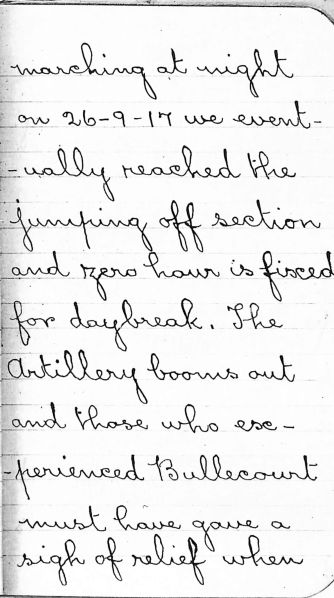 marching at night
on 26-9-17 we event-
-ually reached the
jumping off section
and zero hour is fixed
for daybreak. The
Artillery booms out
and those who exc-
-perienced Bullecourt
must have gave a
sigh of relief when